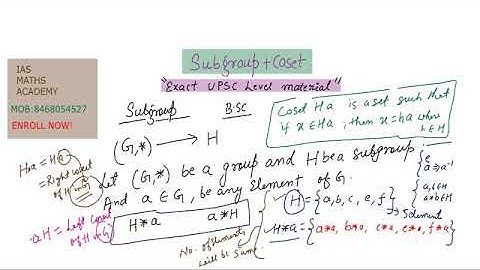 Subgroup + Coset
"Exact UPSC Level material"
IAS
MATHS
ACADEMY
MOB:8468054527
ENROLL NOW!
Subgroup
B.SC
(G,*) → H
Coset Ha is a set such that
if x∈Ha, then x=ha where
h∈H
H*a = Ha
= Right coset
of H in G
Let (G,*) be a group and H be a subgroup
And a∈G, be any element of G.
{e
a⇒a⁻¹
a,b∈H
a*b∈H
aH = Left Coset
of H in G
H*a a*H
No. of elements
will be same
H = {a,b,c,e,f}
5 element
H*a = {a*a, b*a, c*a, e*a, f*a}